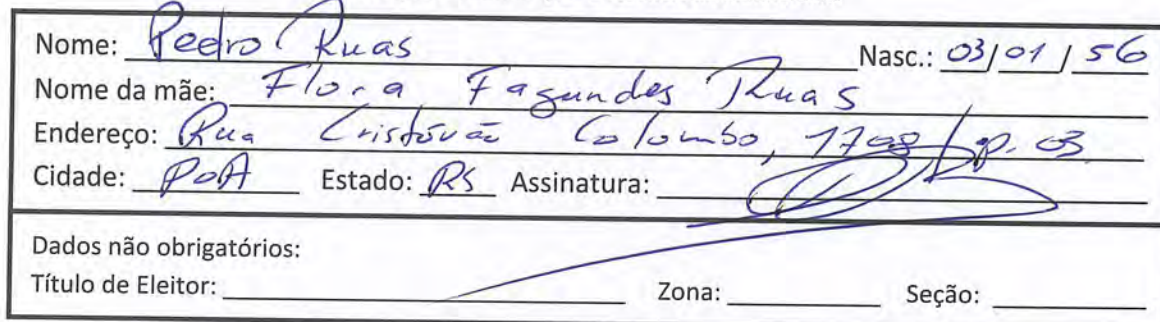 Nome: Pedro Ruas Nasc.: 03/01/56
Nome da mãe: Flora Fagundes Ruas
Endereço: Rua Cristóvão Colombo, 1708/ap. 03
Cidade: PoA Estado: RS Assinatura:
Dados não obrigatórios:
Título de Eleitor: Zona: Seção: